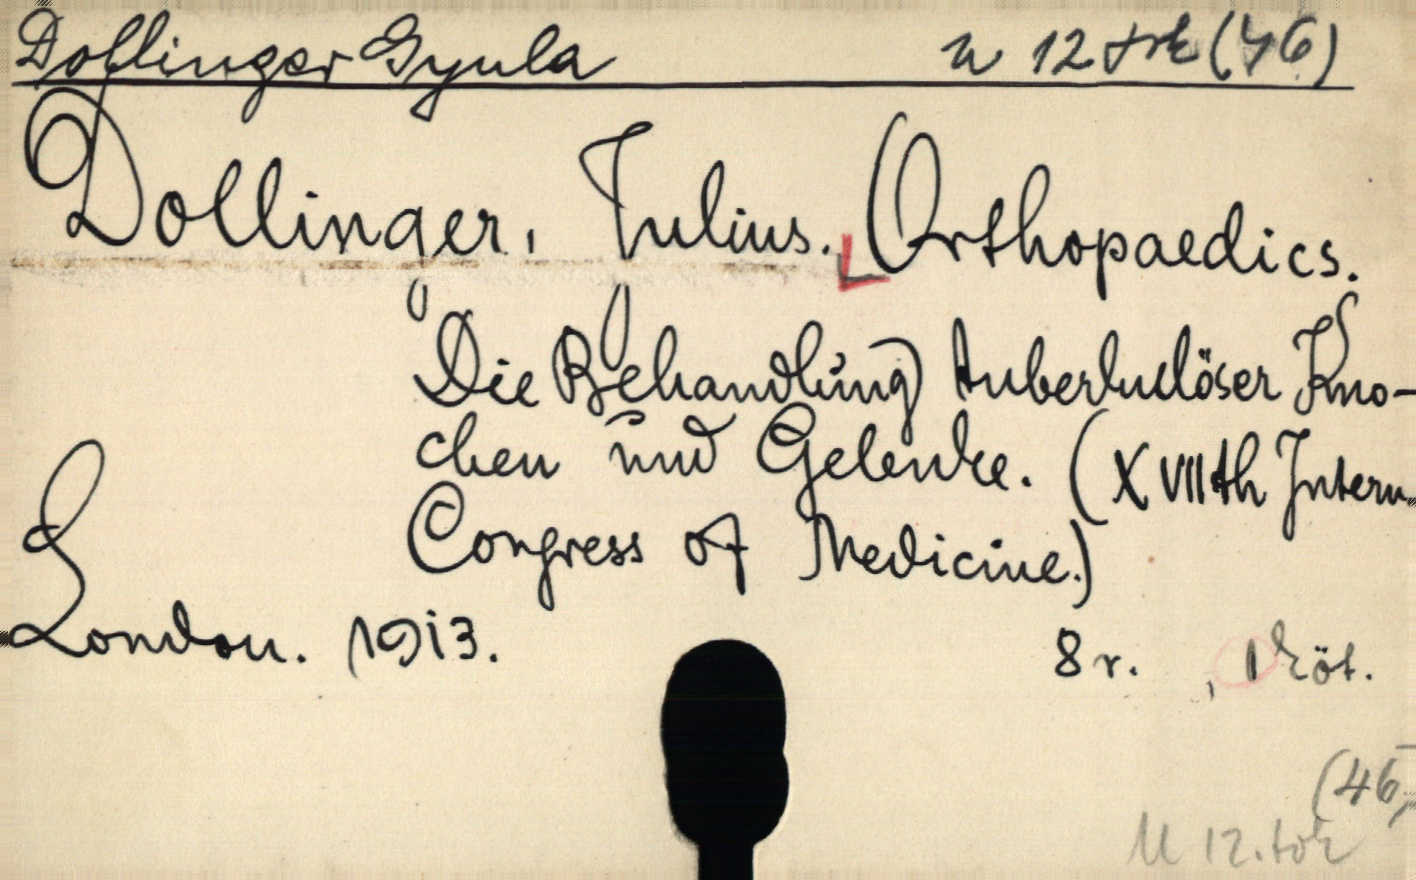 Dollinger Gyula
Dollinger, Julius. Orthopaedics.
Die Behandlung tuberkulöser Kno-
chen und Gelenke. (XVIIth Intern.
Congress of Medicine.)
London. 1913. 8r. , 1 köt.
(46)
U 12.